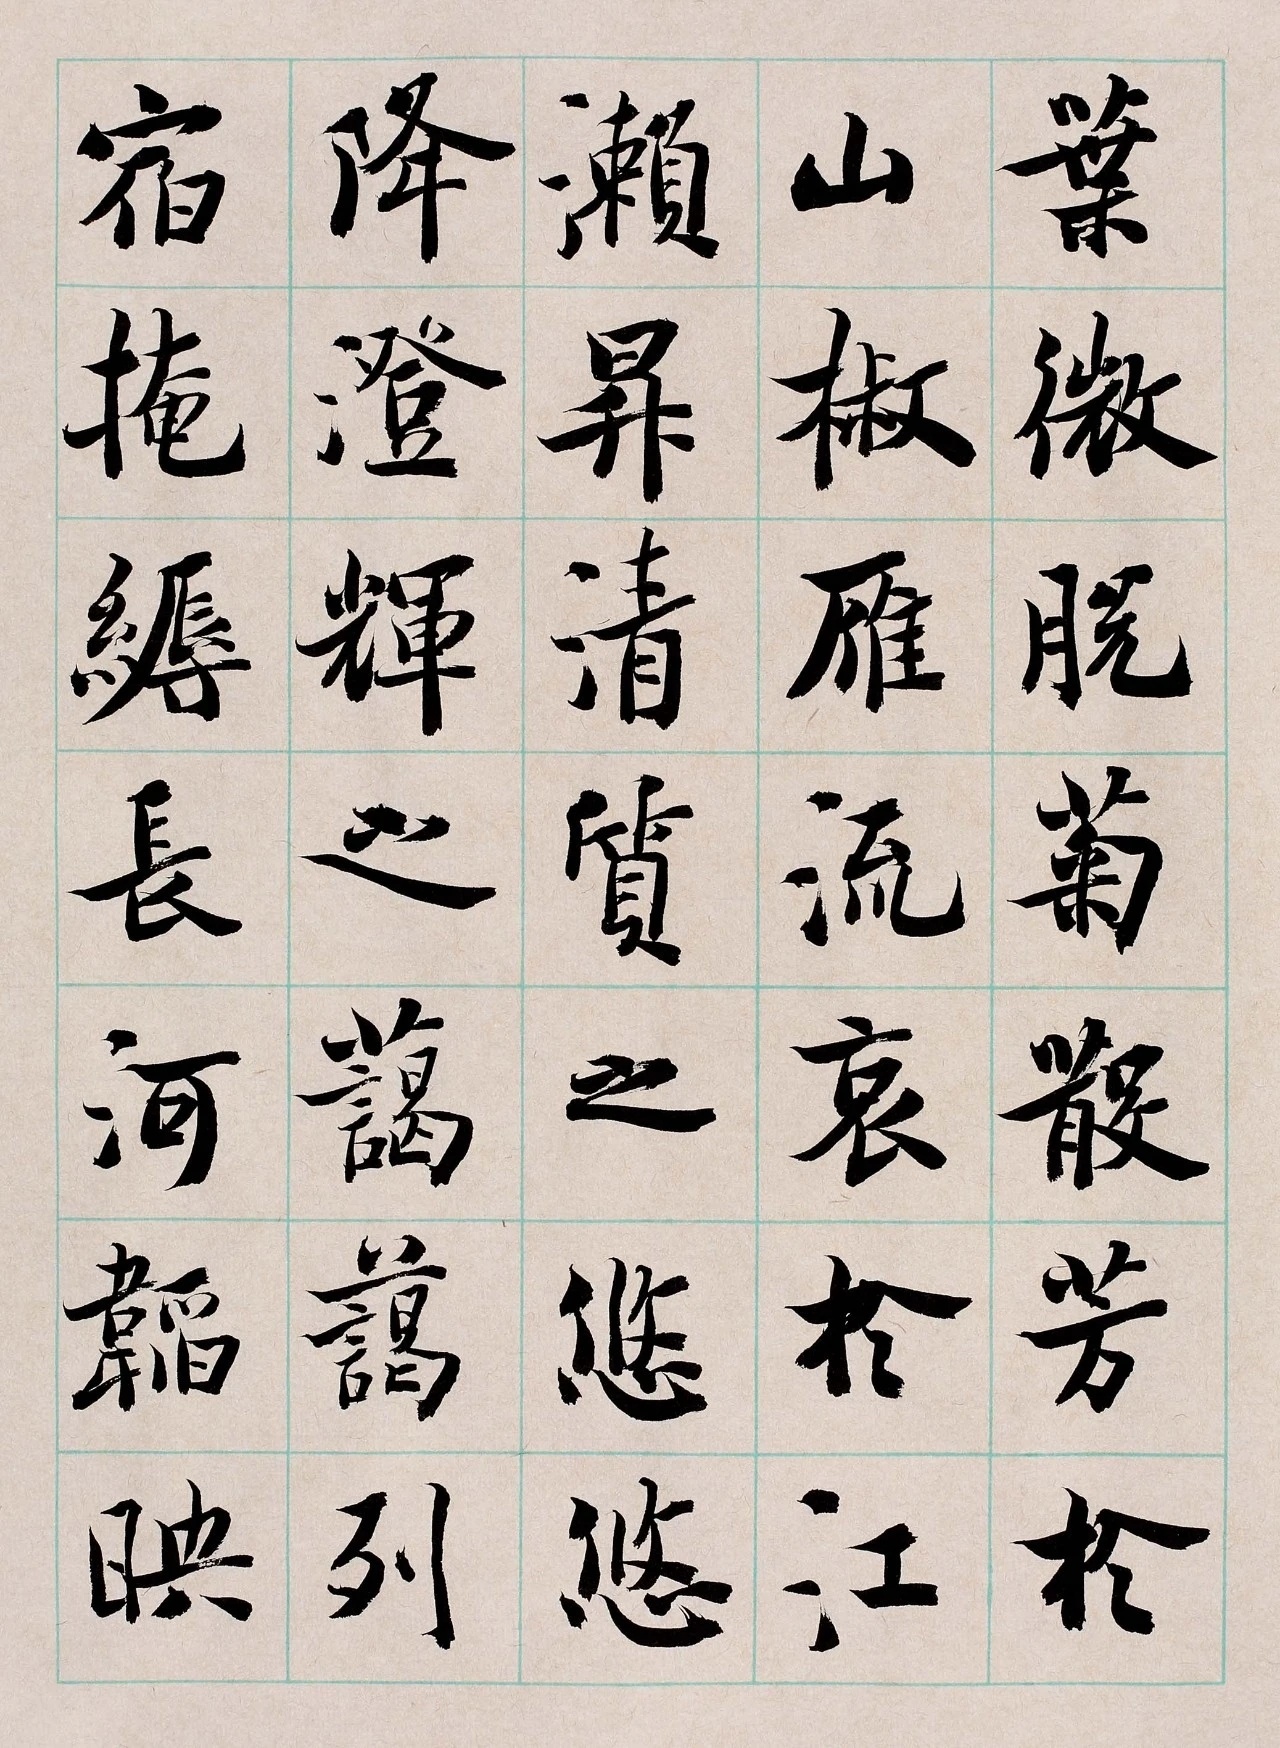 葉微脱菊散芳於
山椒雁流哀於江
瀨昇清質之悠悠
降澄輝之藹藹列
宿掩縟長河韜映